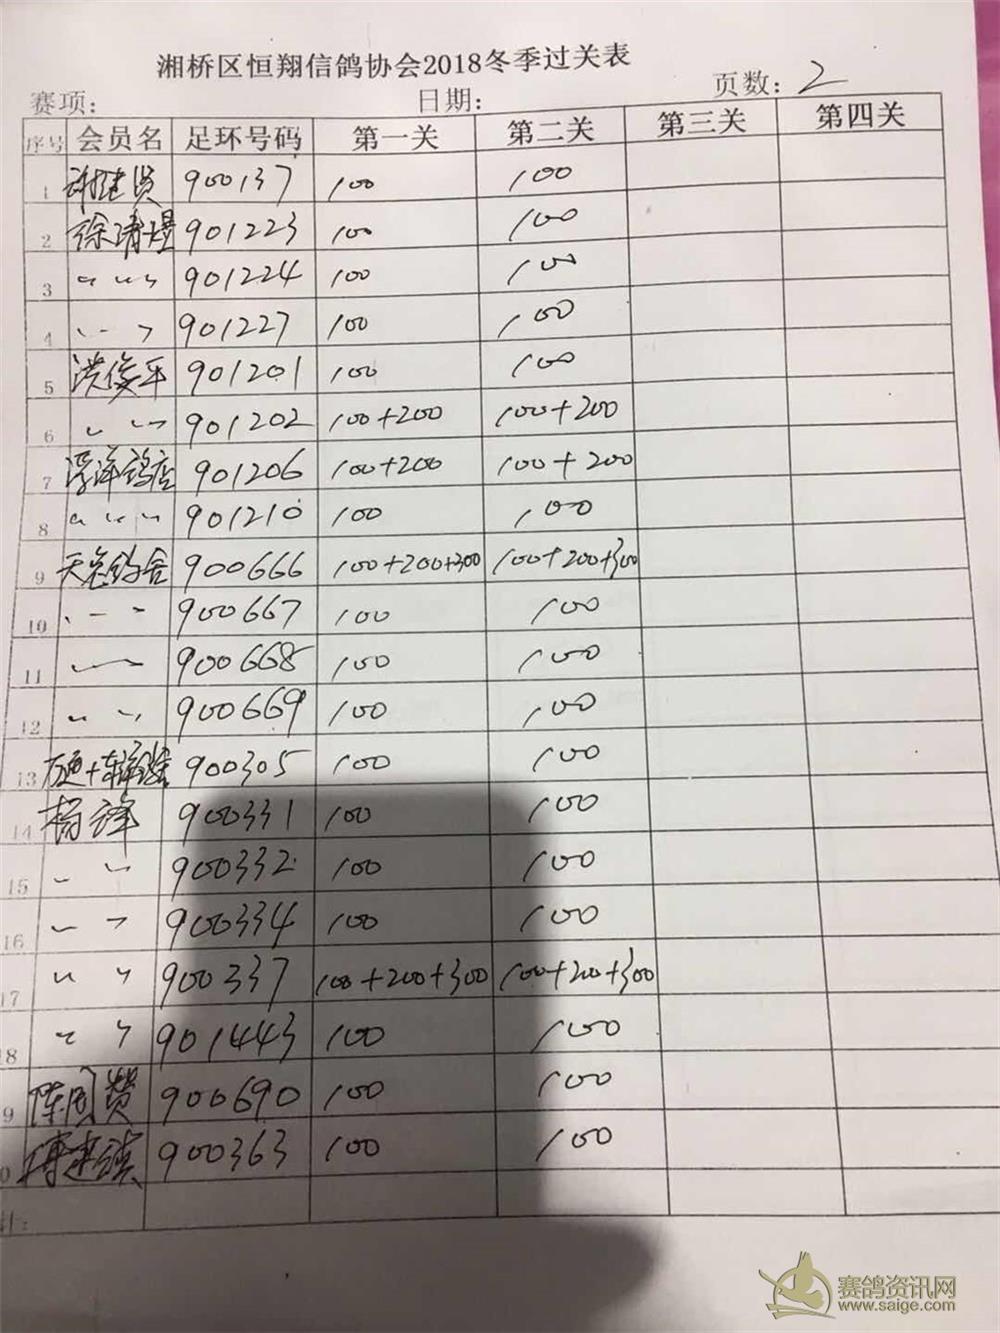 湘桥区恒翔信鸽协会2018冬季过关表
赛项: 日期: 页数: 2
序号 会员名 足环号码 第一关 第二关 第三关 第四关
1 900137 100 100
2 徐清煜 901223 100 100
3 〃 〃 901224 100 100
4 〃 〃 901227 100 100
5 洪俊平 901201 100 100
6 〃 〃 901202 100+200 100+200
7 浮洋鸽店 901206 100+200 100+200
8 〃 〃 901210 100 100
9 900666 100+200+300 100+200+300
10 〃 〃 900667 100 100
11 〃 〃 900668 100 100
12 〃 〃 900669 100 100
13 900305 100 100
14 杨锋 900331 100 100
15 〃 〃 900332 100 100
16 〃 〃 900334 100 100
17 〃 〃 900337 100+200+300 100+200+300
8 〃 〃 901443 100 100
9 900690 100 100
0 900363 100 100
计:
赛鸽资讯网
www.saige.com